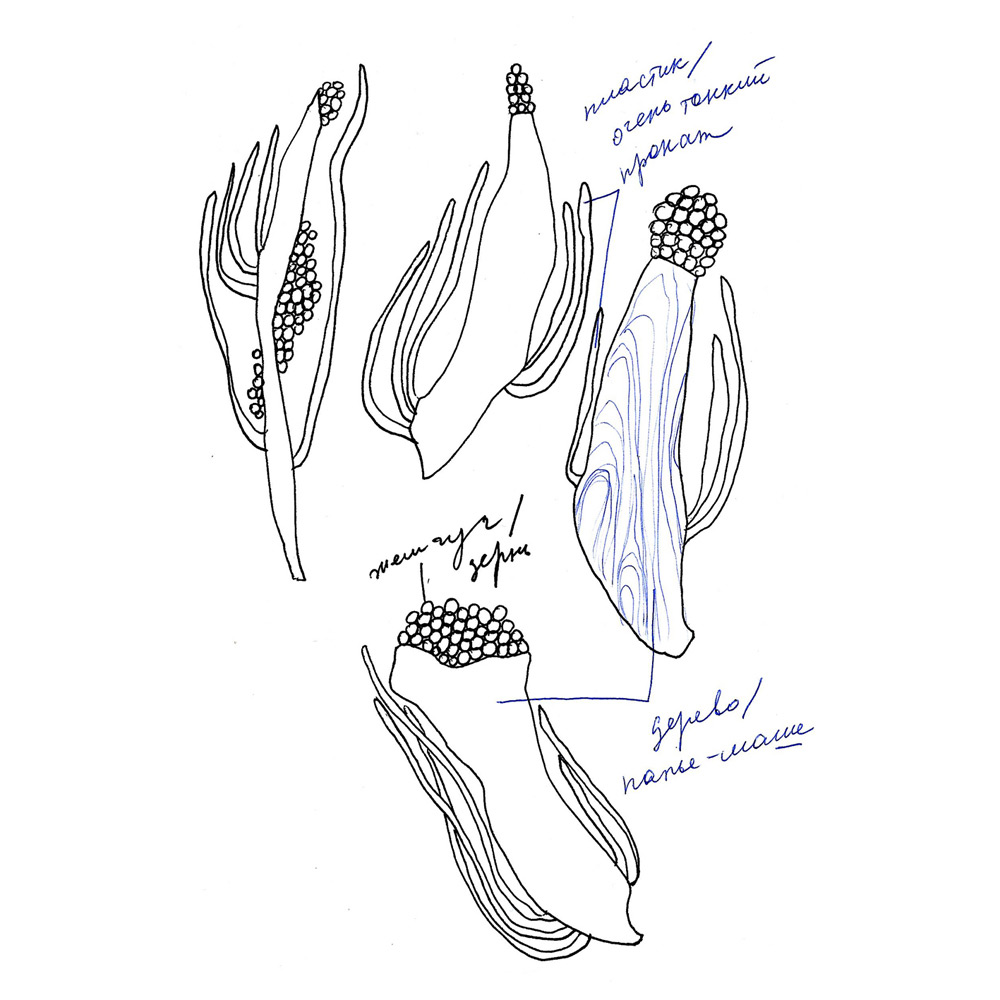 пластик/
очень тонкий
прокат
жемчуг/
зерни
дерево/
папье-маше